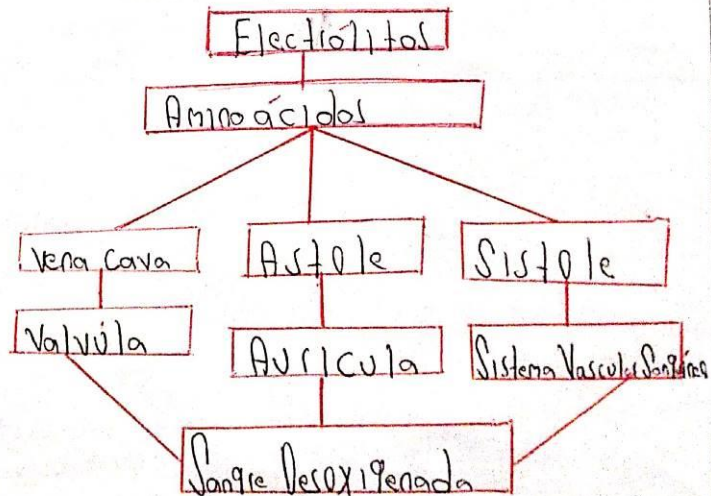 Electrólitos
Aminoácidos
Vena Cava
Astole
Sistole
Valvúla
Auricula
Sistema Vascular Sanguíneo
Sangre Desoxigenada